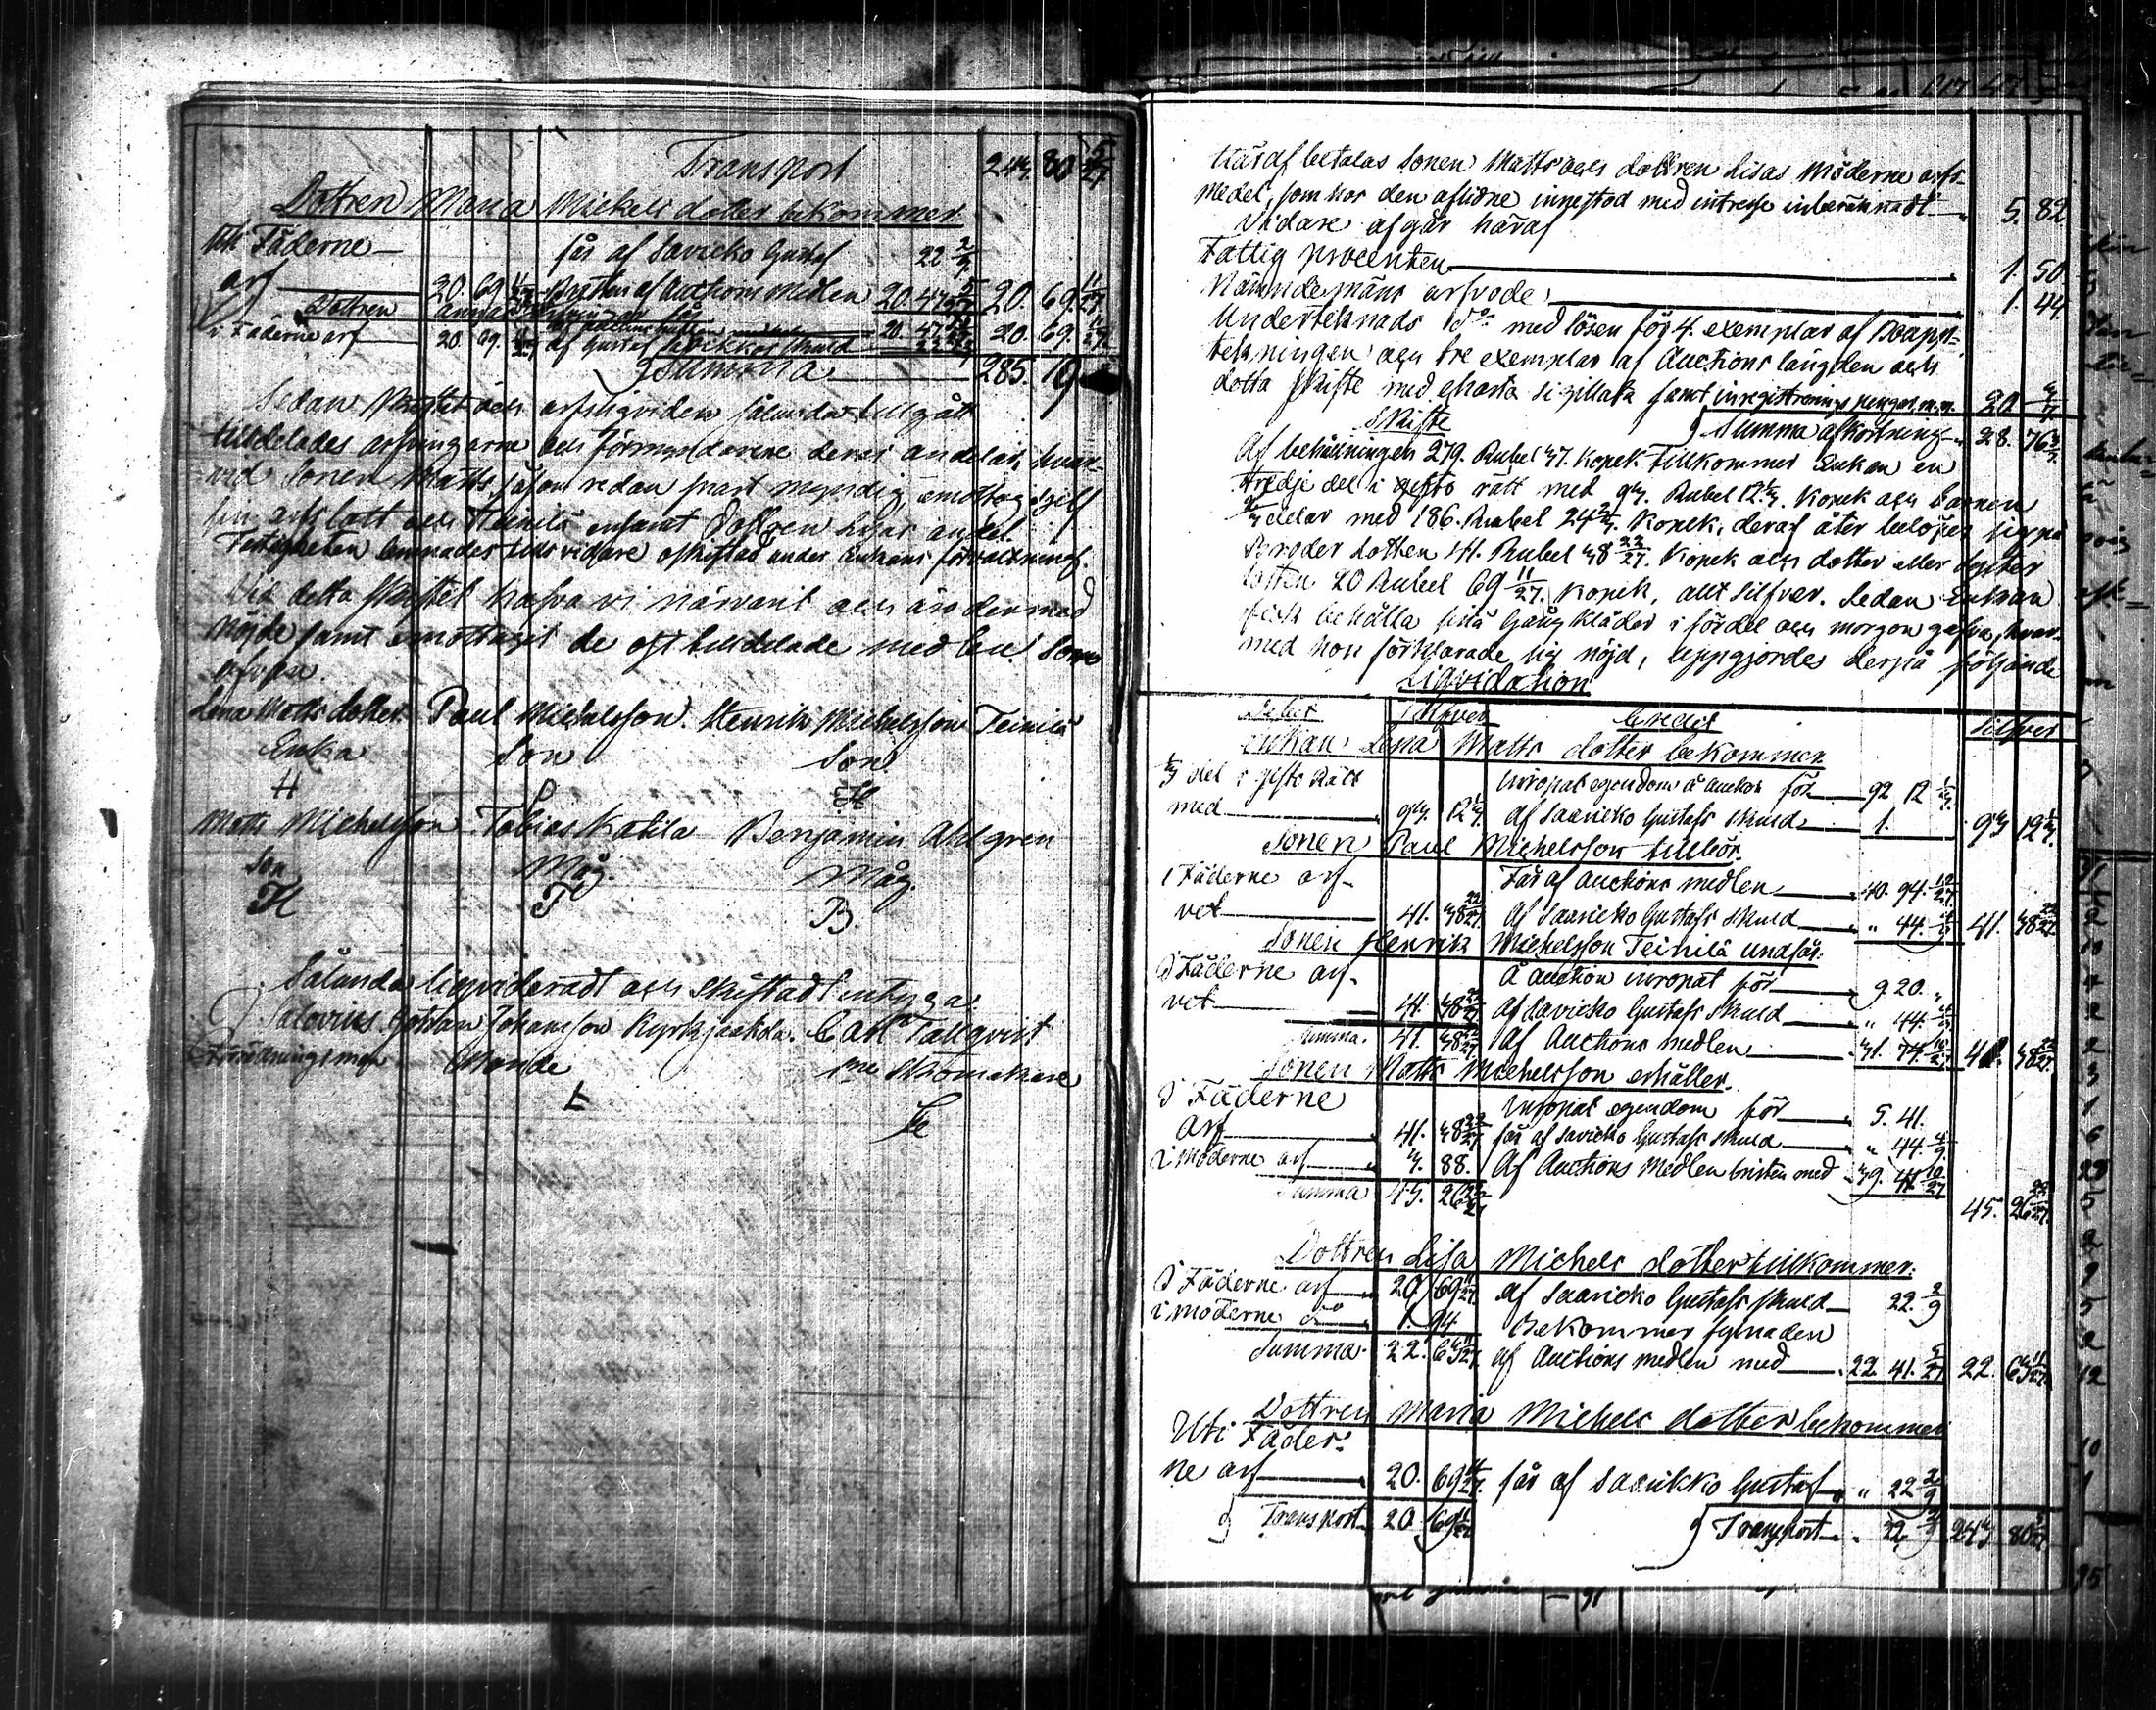 Transport 243. 80 5/27
Dottren Maria Michels dotter bekommer.
Uti Fäderne får af Savicko Gustaf 22 2/9
arf 20. 69 11/27 Bristen af Auctions Medlen 20. 47 5/27 20. 69. 11/27
Dottren Anna
i Fäderne arf 20. 69. 11/27 af Gustaf skuld 20. 69. 11/27
Summa 285. 19
Sedan skiftet och arfsliqviden sålunda tillgått
tilldelades arfvingarne och förmyndarene deras andelar, hvar-
vid Sonen Matts såsom redan snart myndig emottog sjelf
sin arfslott och Heinilä enfamt Dottren Lisas andel.
Fastigheten lemnades tills vidare oskiftad under Enkans förvaltning.
Vid detta skiftet hafva vi närvarit och äro dermed
nöjde samt emottagit de oss tilldelade medlen. Som
ofvan.
Lena Matts dotter Paul Michelsson Henrik Michelsson Teinilä
Enka Son Son
Matts Michelsson Tobias Katila Benjamin Ahlgren
Son Måg. Måg.
T B.
Sålunda liqvideradt och skiftadt intyga:
G. Salovius Johan Johansson Kyrkjaakola. Carl Tallqvist
Uti skomakare
Häraf betalas Sonen Matts och dottren Lisas Möderne arfs-
medel, som hos den aflidne innestod med intresse inberäknadt 5. 82.
Vidare afgår häraf
Fattig procenten 1. 50.
Nämndemäns arfvode 1. 44.
Undertecknads do med lösen för 4. exemplar af Bouppt-
tekningen och tre exemplar af Auctions längden och
detta skifte med charta sigillata samt inregistrerings pengar m.m. 20
Skifte Summa afkortning 28. 76
Af behållningen 279. Rubel 37. Kopek tillkommer Enkan en
tredje del i gifto rätt med 93. Rubel 12 1/3. Kopek och barnen
2/3 delar med 186. Rubel 24 2/3. Kopek, deraf åter belöper sig på
Broder lotten 41. Rubel 38 22/27. Kopek och dotter eller syster
lotten 20 Rubel 69 11/27. Kopek, allt silfver. Sedan Enkan
fick behålla sina Gång kläder i fördel och morgongåfva, hvar-
med hon förklarade sig nöjd, uppgjordes derpå följande
Liqvidation
Debet Silfver Credit Silfver
Enkan Lena Matts dotter bekommer.
1/3 del i gifto Rätt Inropat egendom å Auction för 92 12 1/3
med 93. 12 1/3. af Saaricko Gustafs skuld 1. 93 12 1/3.
Sonen Paul Michelsson tillhör.
i Fäderne arf- Får af Auctions medlen 40. 94. 10/27
vet 41. 38 22/27. Af Saaricko Gustafs skuld " 44. 4/9 41. 38 22/27.
Sonen Henrik Michelsson Teinilä undfår.
i Fäderne arf- Å Auction inropat för 9. 20. "
vet 41. 38 22/27. Af Savicko Gustafs skuld " 44. 4/9
Summa. 41. 38 22/27. Af Auctions medlen 31. 74. 10/27 41. 38 22/27.
Sonen Matts Michelsson erhåller.
i Fäderne Inropat egendom för 5. 41.
Arf 41. 38 22/27. får af Savicko Gustafs skuld " 44. 4/9.
i Möderne arf 3. 88. Af Auctions Medlen bristen med 39. 41 10/27
Summa 45. 26 22/27. 45. 26 22/27.
Dottren Lisa Michels dotter tillkommer:
i Fäderne arf 20. 69 11/27. af Saaricko Gustafs skuld 22. 2/9
i möderne do 1. 94 Bekommer fyllnaden
Summa. 22. 63 11/27. af Auctions medlen med 22. 41. 5/27 22. 63 11/27.
Dottren Maria Michels dotter bekommer
Uti Fäder-
ne arf 20. 69 11/27. får af Saarikko Gustaf " 22 2/9
Transport 20. 69 11/27 Transport " 22 2/9 243 80 5/27